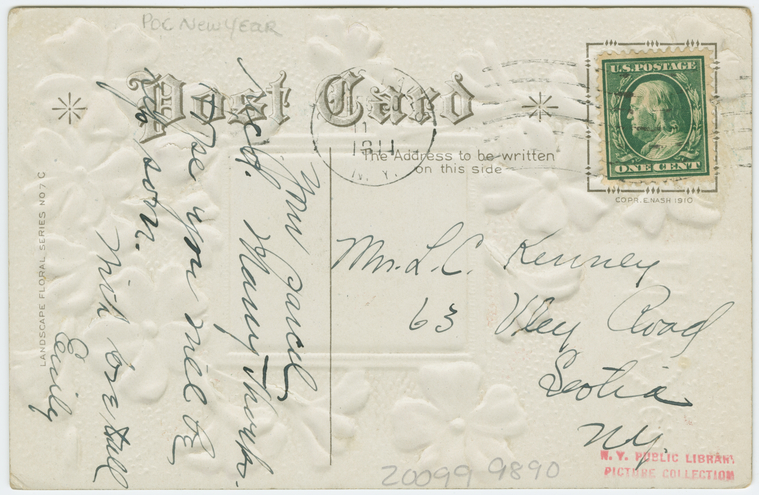 POC NEW YEAR
Post Card
1911
N.Y.
U.S. POSTAGE
ONE CENT
The Address to be written
on this side
COPR. E. NASH 1910
LANDSCAPE FLORAL SERIES NO 7 C
Your
rec'd. Many thanks.
you will be
soon.
With love to all
Emily
L.C. Kenney
63 Vley Road
Scotia
N.Y.
N.Y. PUBLIC LIBRARY
PICTURE COLLECTION
20099 9890